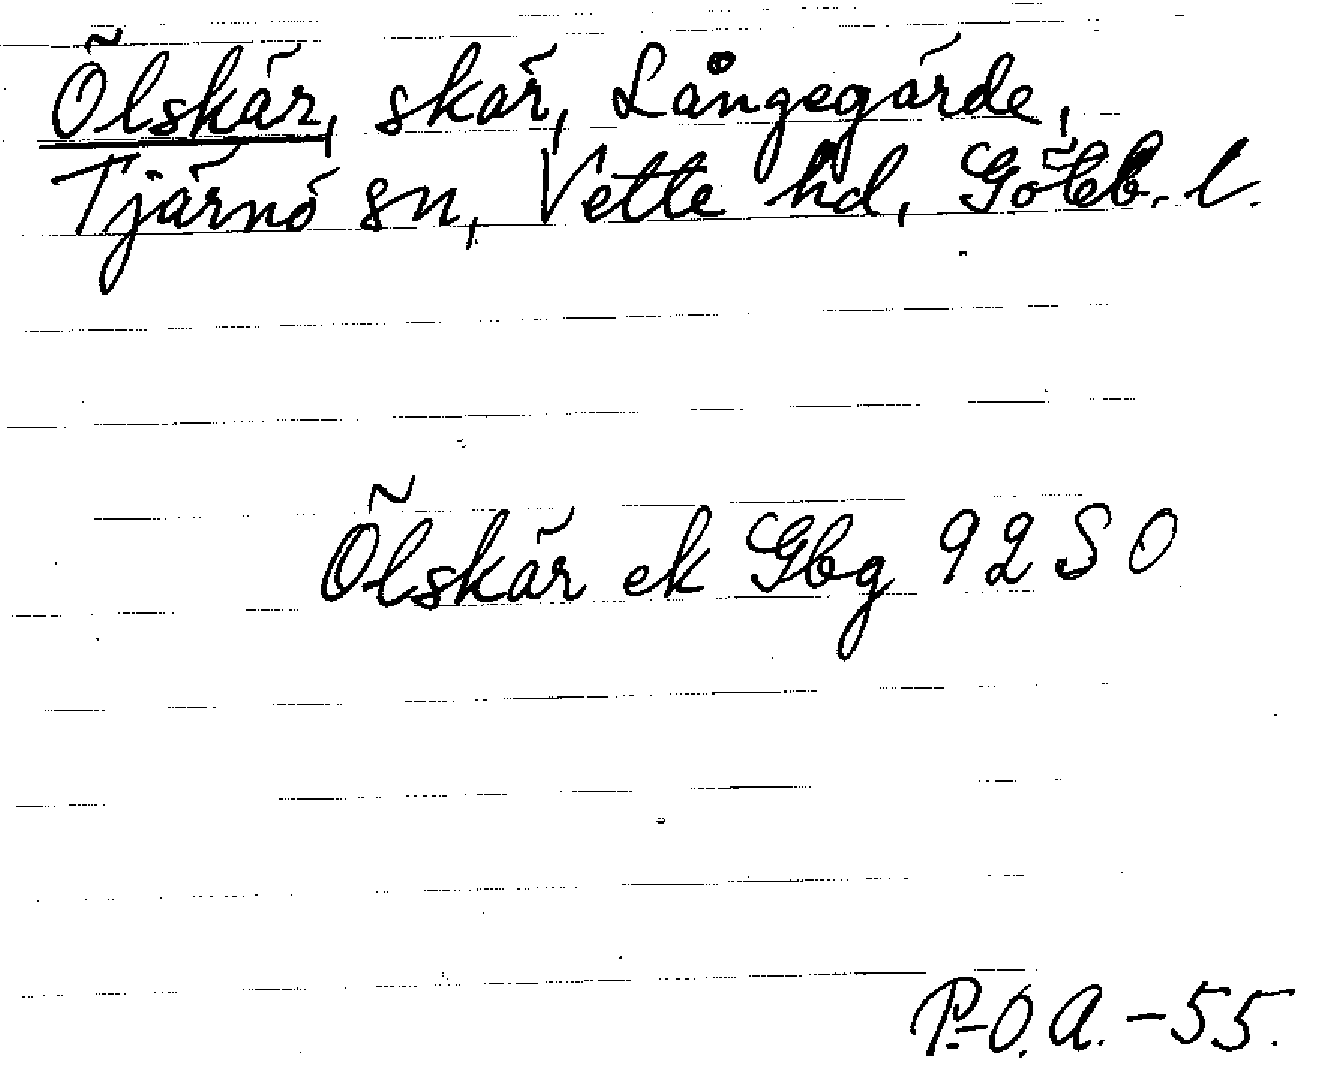 Ölskär, skär, Långegärde,
Tjärnö sn, Vette hd, Göteb. l.
Ölskär ek Gbg 92 SO
P-O. A. -55.